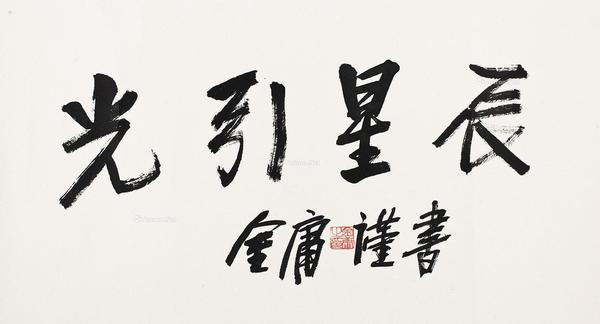 光引星辰
金庸 謹書